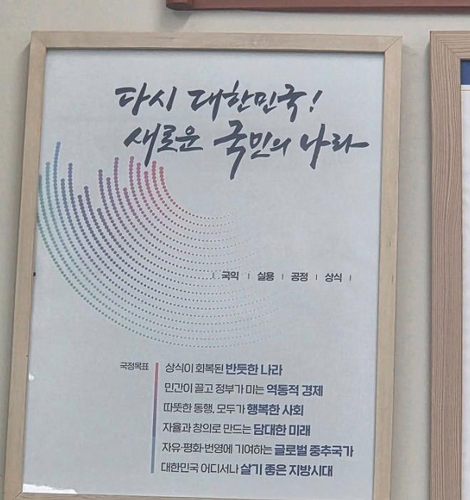 다시 대한민국!
새로운 국민의 나라
국익 | 실용 | 공정 | 상식
국정목표
상식이 회복된 반듯한 나라
민간이 끌고 정부가 미는 역동적 경제
따뜻한 동행, 모두가 행복한 사회
자율과 창의로 만드는 담대한 미래
자유·평화·번영에 기여하는 글로벌 중추국가
대한민국 어디서나 살기 좋은 지방시대